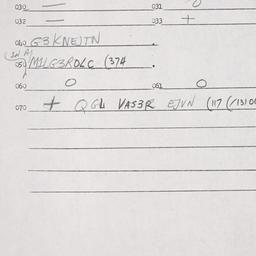 030 — 031 O
032 = 033 +
040 G3KNEJTN .
(IN A)
050 M1LG3RDLC (374 .
060 O 061 O
070 + QGL VAS3R EJVN (117 (/131